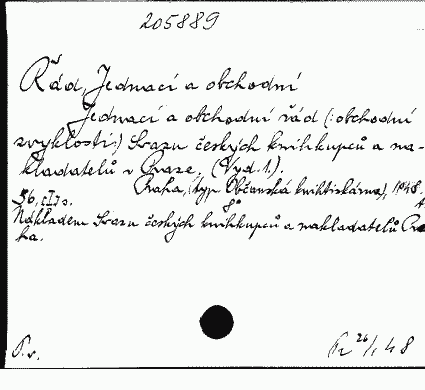 205889
Řád, Jednací a obchodní
Jednací a obchodní řád (: obchodní
zvyklosti:) Svazu českých knihkupců a na-
kladatelů v Praze. (Vyd. 1.).
Praha, (typ. Občanská knihtiskárna), 1948.
8°
56, I s.
Nákladem Svazu českých knihkupců a nakladatelů Pra
ha.
P.v.
Př 26/I 48